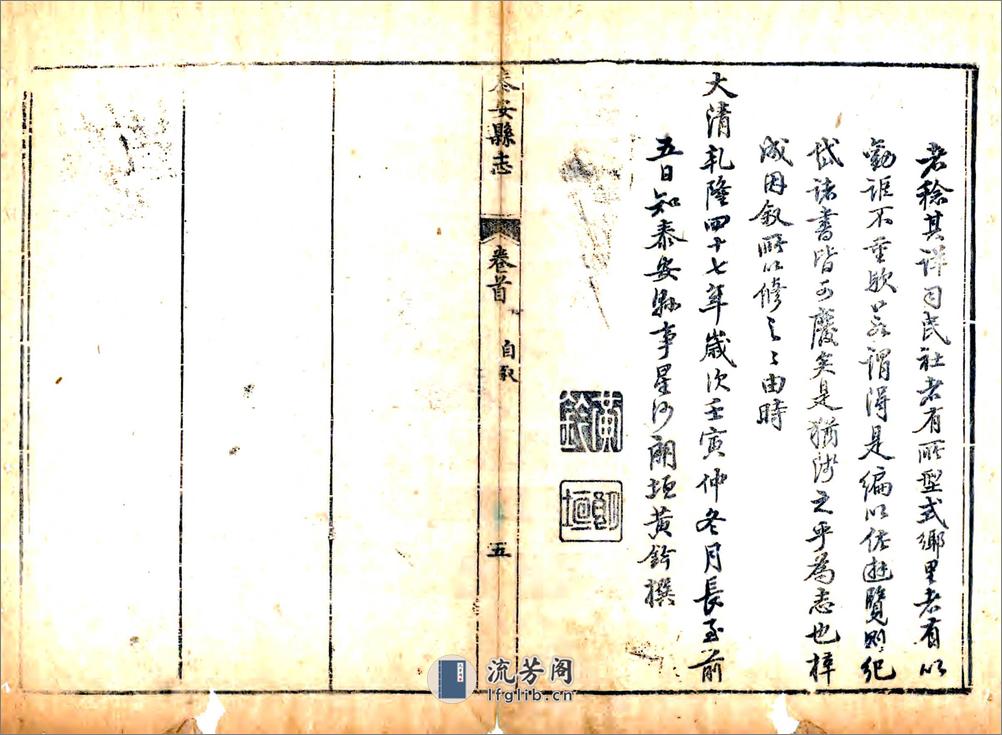 者稔其詳司民社者有所型式鄉里者有以
勸誰不重歟若謂得是編以佐遊覽則紀
岱諸書皆可廢矣是猶淺之乎為志也梓
成因叙所以修之之由時
大清乹隆四十七年歲次壬寅仲冬月長至前
五日知泰安縣事星沙朗垣黃鈐撰
黃鈐
朗垣
泰安縣志
卷首
自叙
五
流芳阁
lfglib.cn